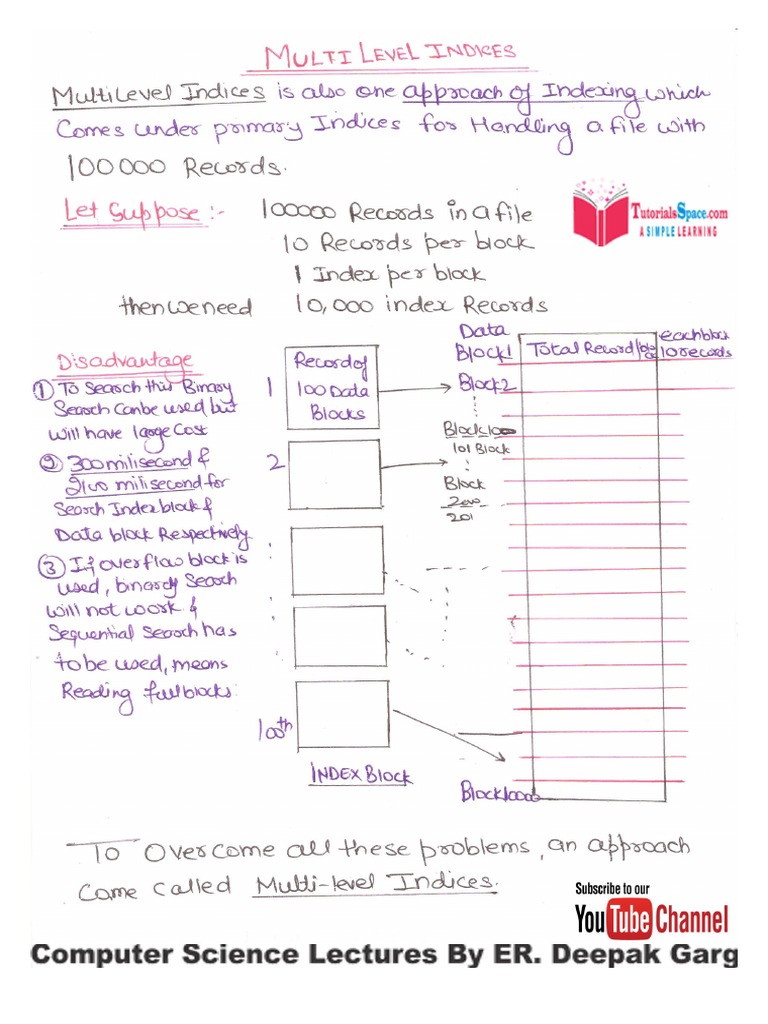 MULTI LEVEL INDICES
Multilevel Indices is also one approach of Indexing which
Comes under primary Indices for Handling a file with
100000 Records.
Let Suppose :- 100000 Records in a file
10 Records per block
1 Index per block
then we need 10,000 index Records
TutorialsSpace.com
A SIMPLE LEARNING
Disadvantage
① To Search this Binary
Search Can be used but
will have large Cost
② 300 milisecond &
2100 milisecond for
Search Index block &
Data block Respectively
③ If overflow block is
used, binary Search
will not work &
Sequential Search has
to be used, means
Reading full blocks:
1
Record of
100 Data
Blocks
2
100th
INDEX Block
Data
Block 1
Block 2
Block 100
101 Block
Block
200
201
Block 10000
Total Record
each block
10 records
To Overcome all these problems, an approach
Came called Multi-level Indices.
Subscribe to our
YouTube Channel
Computer Science Lectures By ER. Deepak Garg